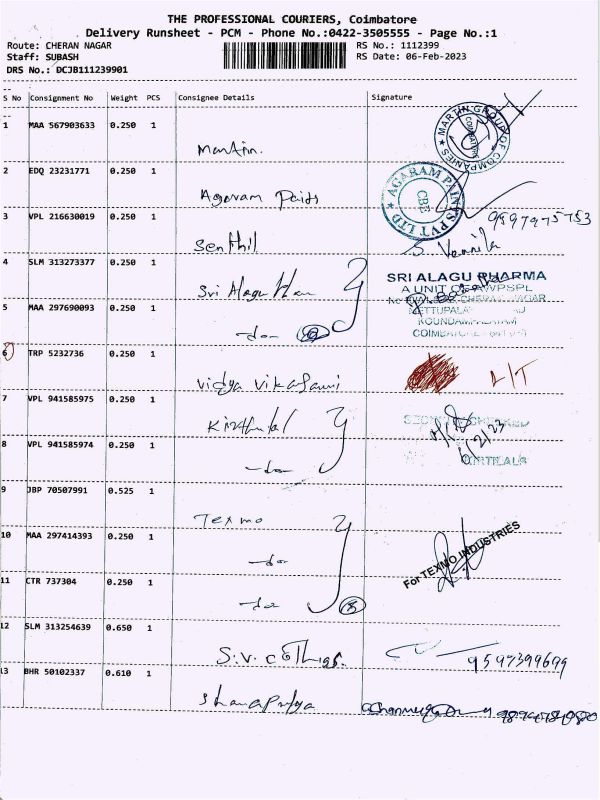 THE PROFESSIONAL COURIERS, Coimbatore
Delivery Runsheet - PCM - Phone No.:0422-3505555 - Page No.:1
Route: CHERAN NAGAR RS No.: 1112399
Staff: SUBASH RS Date: 06-Feb-2023
DRS No.: DCJB111239901
S No Consignment No Weight PCS Consignee Details Signature
1 MAA 567903633 0.250 1 Martin. MARTIN GROUP OF COMPANIES COIMBATORE
2 EDQ 23231771 0.250 1 Agaram Paids AGARAM PAINTS PVT LTD CBE
9597975753
3 VPL 216630019 0.250 1 Senthil S. Vennila
4 SLM 313273377 0.250 1 Sri Alagu SRI ALAGU PHARMA
A UNIT OF
5 MAA 297690093 0.250 1 -do- 2
6 TRP 5232736 0.250 1 Vidya Vikasani L/T
7 VPL 941585975 0.250 1 Kirthilal
6/2/23
8 VPL 941585974 0.250 1 -do- KIRTILALS
9 JBP 70507991 0.525 1 Texmo
10 MAA 297414393 0.250 1 -do- For TEXMO INDUSTRIES
11 CTR 737304 0.250 1 -do- 3
12 SLM 313254639 0.650 1 S.V. 9597399699
13 BHR 50102337 0.610 1